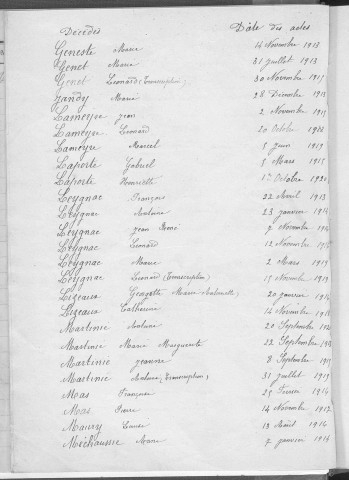 Décédés Dâte des actes
Geneste Marie 14 Novembre 1913
Genet Marie 31 juillet 1913
Genet Léonard (Transcription) 30 Novembre 1915
Jandy Marie 28 Décembre 1913
Lameyre Jean 2 Novembre
Lameyre Léonard 20 Octobre 1918
Lameyre Marcel 5 juin 1919
Laporte Gabriel 5 Mars 1915
Laporte Henriette Octobre 1920
Leygnac François 22 Avril 1913
Leygnac Antoine 23 janvier 1914
Leygnac Jean René 7 Novembre
Leygnac Léonard 12 Novembre
Leygnac Marie 2 Mars 1919
Leygnac Léonard (Transcription) 15 Novembre 1919
Lizeaux Marie Antoinette 20 janvier
Lizeaux Catherine 14 Novembre
Martinie Antoine 20 Septembre
Martinie Marie Marguerite 22 Septembre
Martinie Jeanne 8 Septembre
Martinie Antoine (Transcription) 31 juillet 1919
Mas Françoise 25 Février 1914
Mas Pierre 14 Novembre 1917
Maury 13 Août 1914
Méchaussie Marie 7 janvier 1914